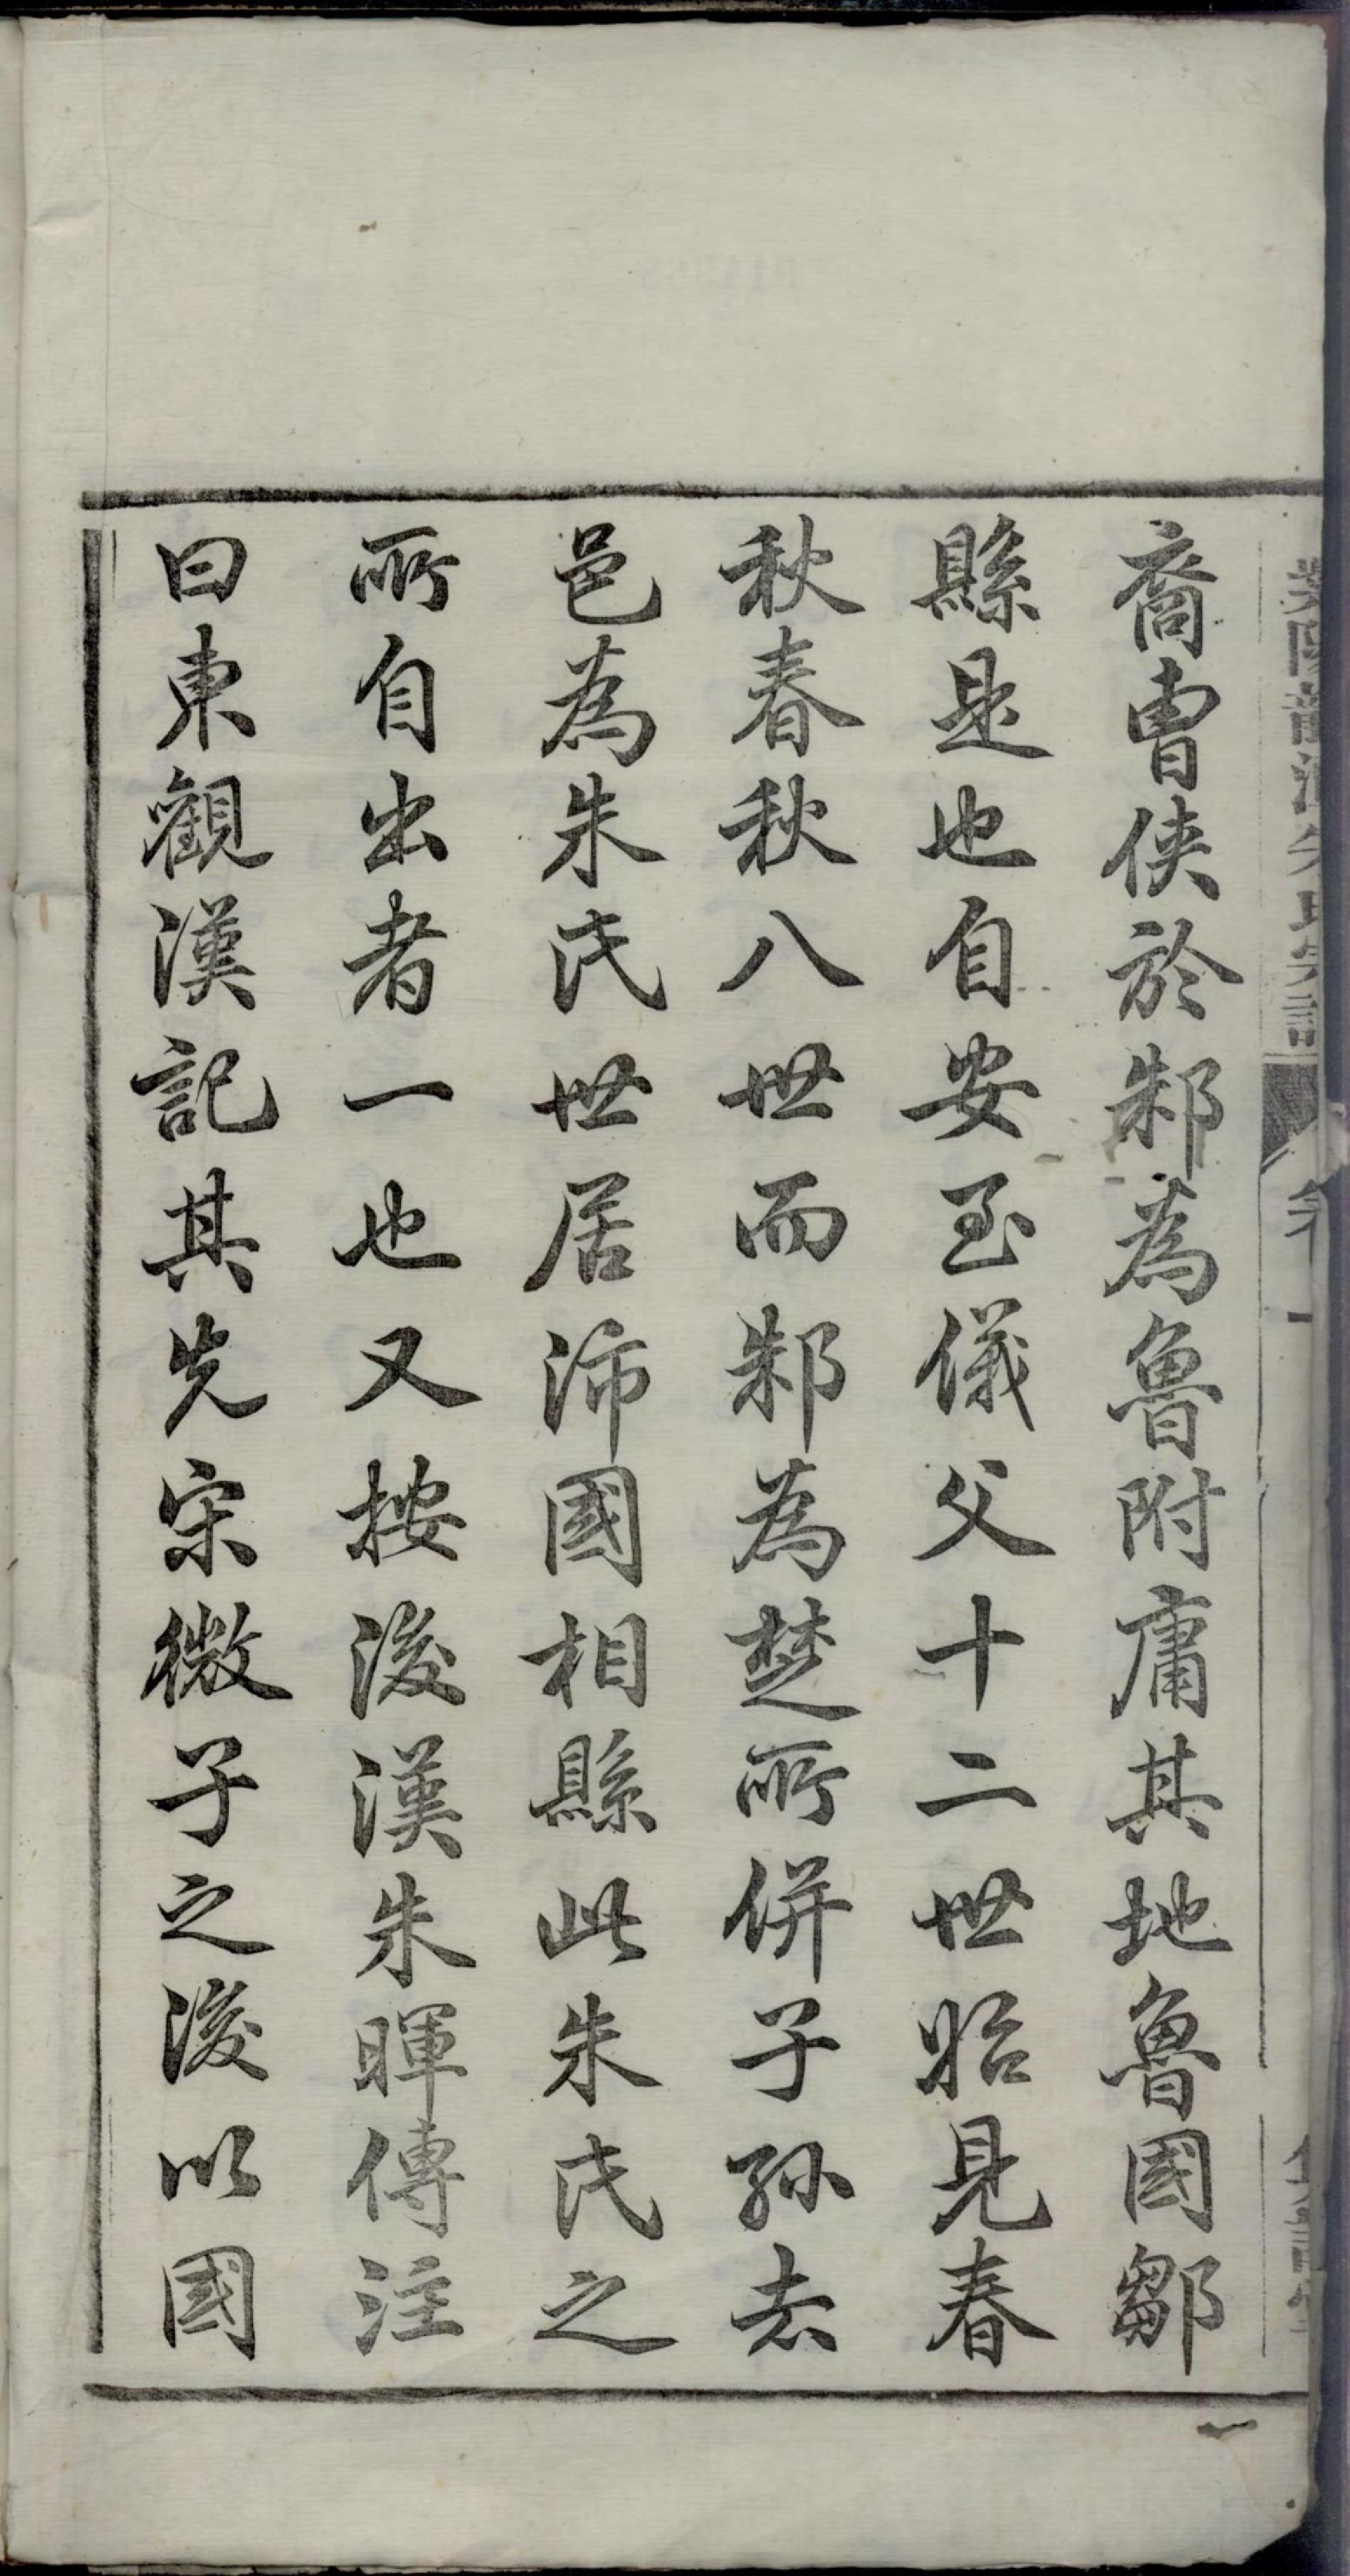 裔曺侠於邾為魯附庸其地魯國鄒
縣是也自安至儀父十二世始見春
秋春秋八世而邾為楚所併子孫去
邑為朱氏世居沛國相縣此朱氏之
所自出者一也又按後漢朱暉傳注
曰東觀漢記其先宋微子之後以國